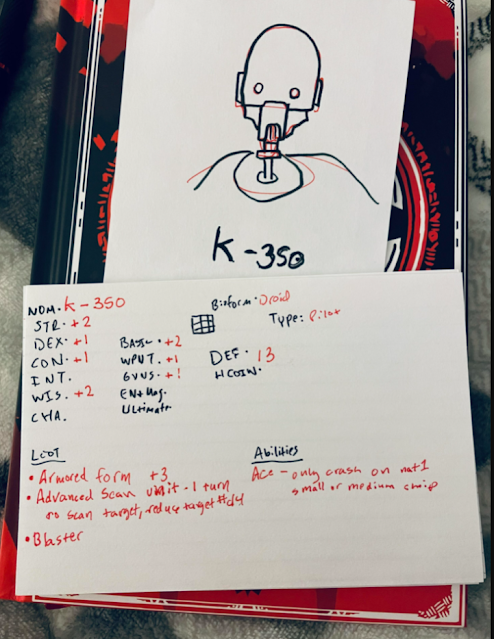 K-350
NOM. K-350
Bioform. Droid
Type: Pilot
STR. +2
DEX. +1
CON. +1
INT.
WIS. +2
CHA.
BASIC. +2
WPNT. +1
GUNS. +1
EN+Mag.
Ultimate.
DEF. 13
HCOIN.
LOOT
• Armored form +3
• Advanced Scan Unit - 1 turn
to scan target, reduce target #d4
• Blaster
Abilities
Ace - only crash on nat 1
small or medium ship